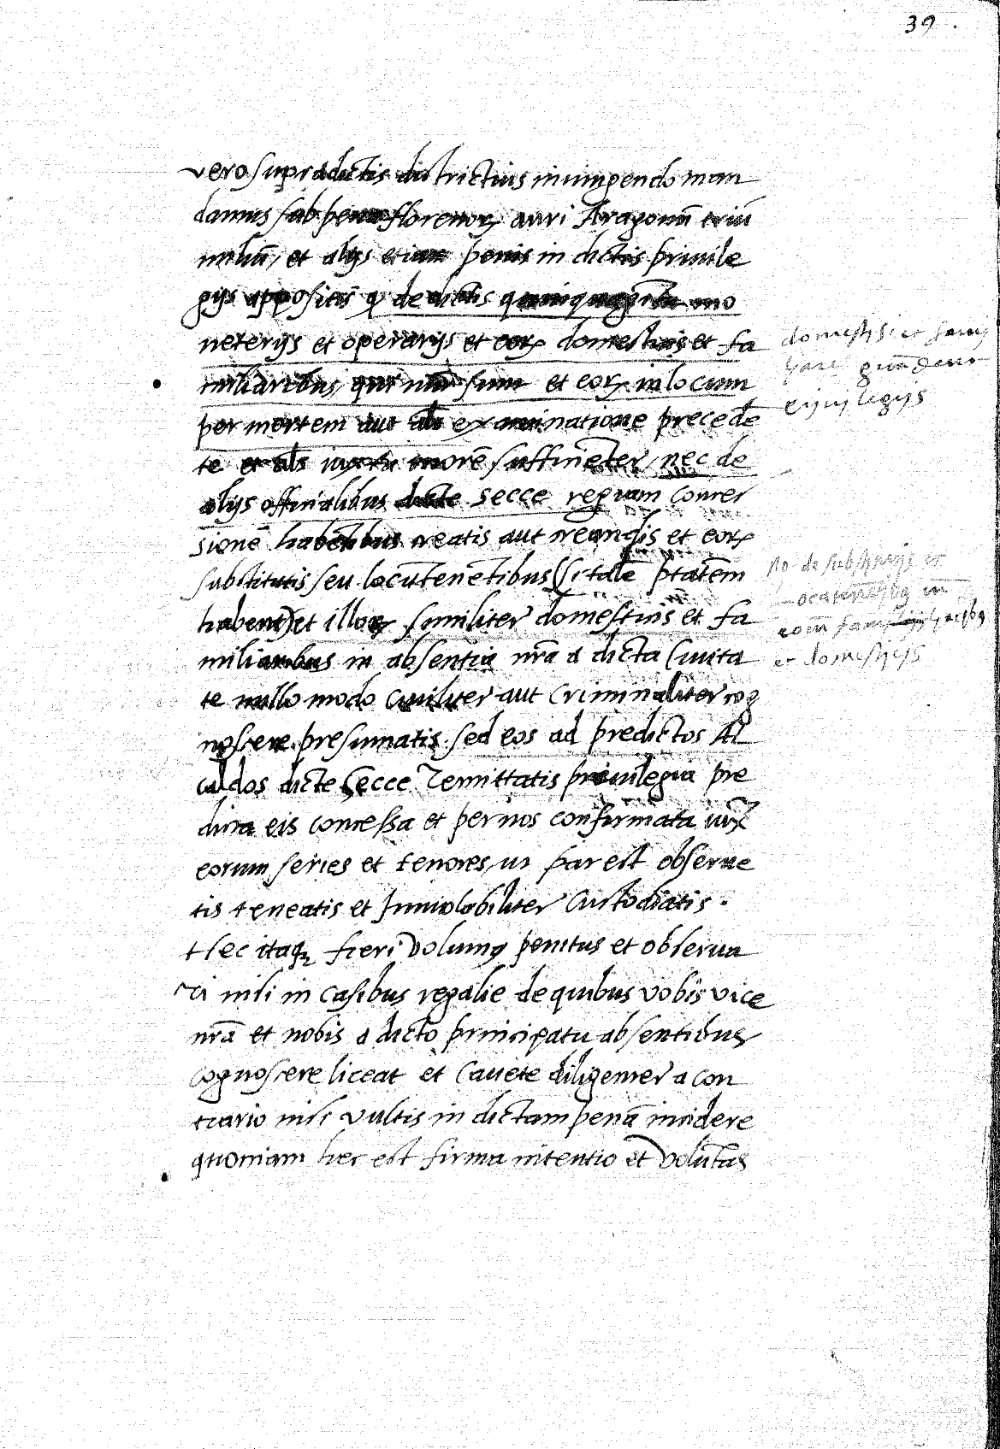 39
vero supradictis districtius iniungendo man
damus sub pena florenoꝝ auri Aragonū triū
miliū, et alijs etiam penis in dictis priuile
gijs appositis ꝙ de dictis quinquaginta mo
neterijs et operarijs et eoꝝ domesticis et fa
miliaribus, qui nūc sunt et eoꝝ in locum
per mortem aut als examinatione precedē
te et als iuxta morē sufficiētur, nec de
alijs officialibus dicte secce reguam conces
sionē habentibus creatis aut creandis et eoꝝ
substitutis seu locūtenētibus (si talē ptatēm
habent) et illoꝝ similiter domesticis et fa
miliaribus in absentia nr̄a a dicta Ciuita
te nullo modo ciuiliter aut criminaliter cog
noscere presumatis sed eos ad predictos Al
caldos dicte Secce remittatis priuilegia pre
dicta eis concessa et per nos confirmata iuxᵃ
eorum series et tenores, ut par est obserue
tis teneatis et Inuiolabiliter Custodiatis.
Hec itaqꝫ fieri volumꝰ penitus et obserua
ri nisi in casibus regalie de quibus vobis vice
nr̄a et nobis a dicto principatu absentibus
cognoscere liceat et cauete diligenter a con
trario nisi vultis in dictam penā incidere
quoniam hec est firma intentio et volūtas
domestici et fami
liares gaudeant
no de substitutis et
et domesticis